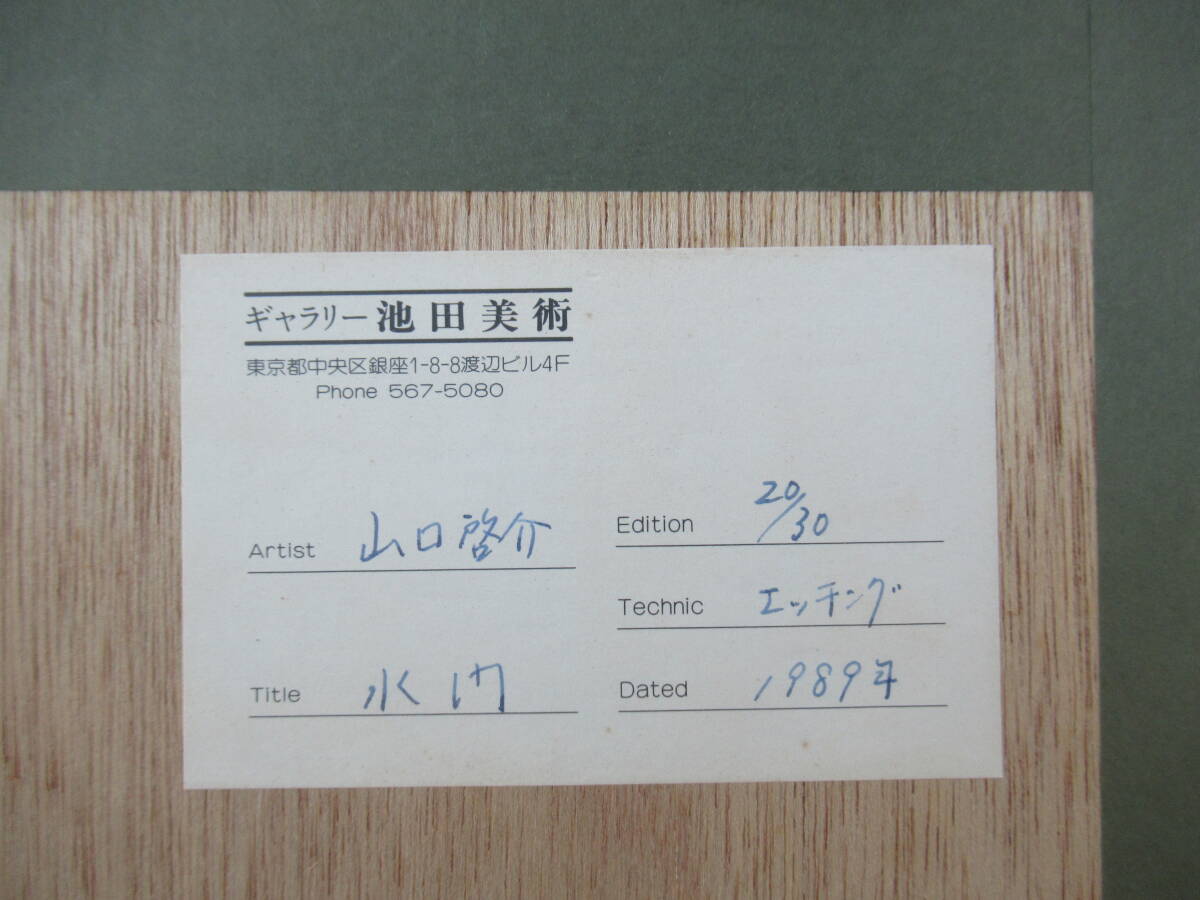 ギャラリー 池田美術
東京都中央区銀座1-8-8渡辺ビル4F
Phone 567-5080
Artist 山口啓介
Title 水門
Edition 20/30
Technic エッチング
Dated 1989年